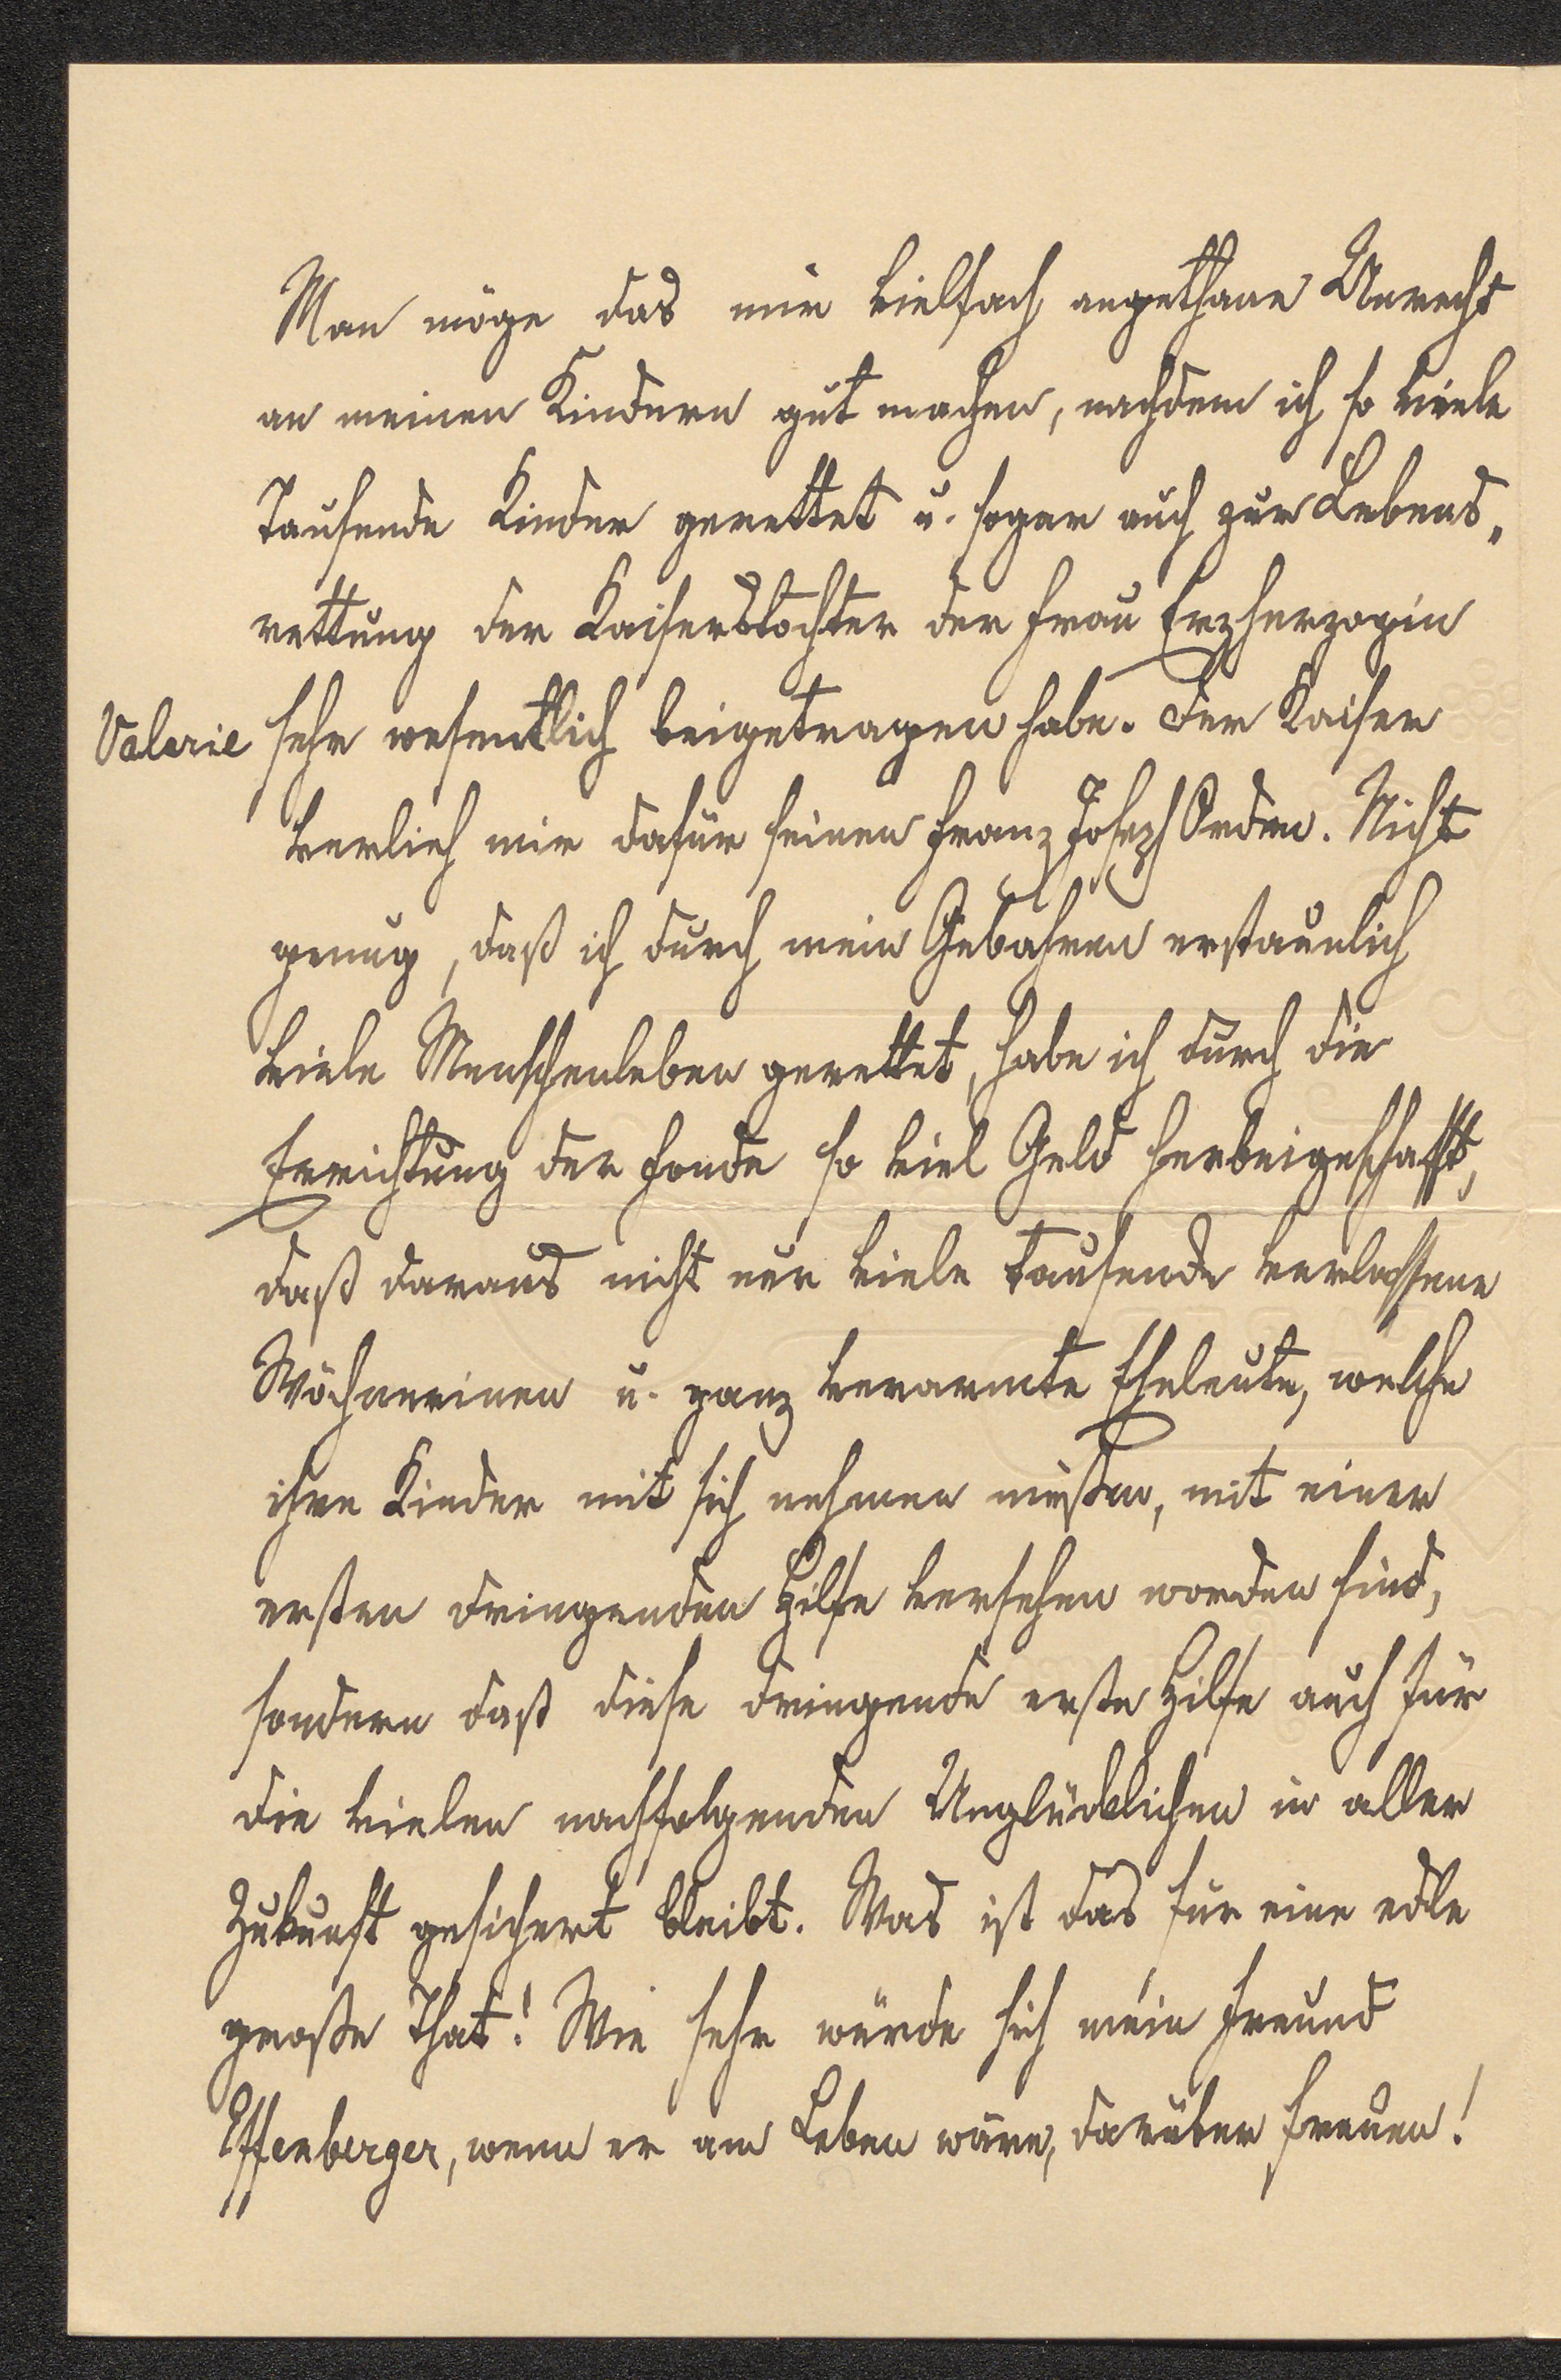 Man möge das mir vielfach angethane Unrecht
an meinen Kindern gut machen, nachdem ich so viele
Tausende Kinder gerettet u. sogar auch zur Lebens„
rettung der Kaiserstochter der Frau Erzherzogin
Valerie sehr wesentlich beigetragen habe. Der Kaiser
verlieh mir dafür seinen Franz Joseph Orden. Nicht
genug, daß ich durch mein Gebahren erstaunlich
viele Menschenleben gerettet, habe ich durch die
Errichtung der Fonde so viel Geld herbeigeschafft,
daß daraus nicht nur viele tausende verlassene
Wöchnerinen u. ganz verarmte Eheleute, welche
ihre Kinder mit sich nehmen müßen, mit einer
ersten dringenden Hilfe versehen worden sind,
sondern daß diese dringende erste Hilfe auch für
die vielen nachfolgenden Unglücklichen in aller
Zukunft gesichert bleibt. Was ist das für eine edle
große That! Wie sehr würde sich mein Freund
Effenberger, wenn er am Leben wäre, darüber freuen!